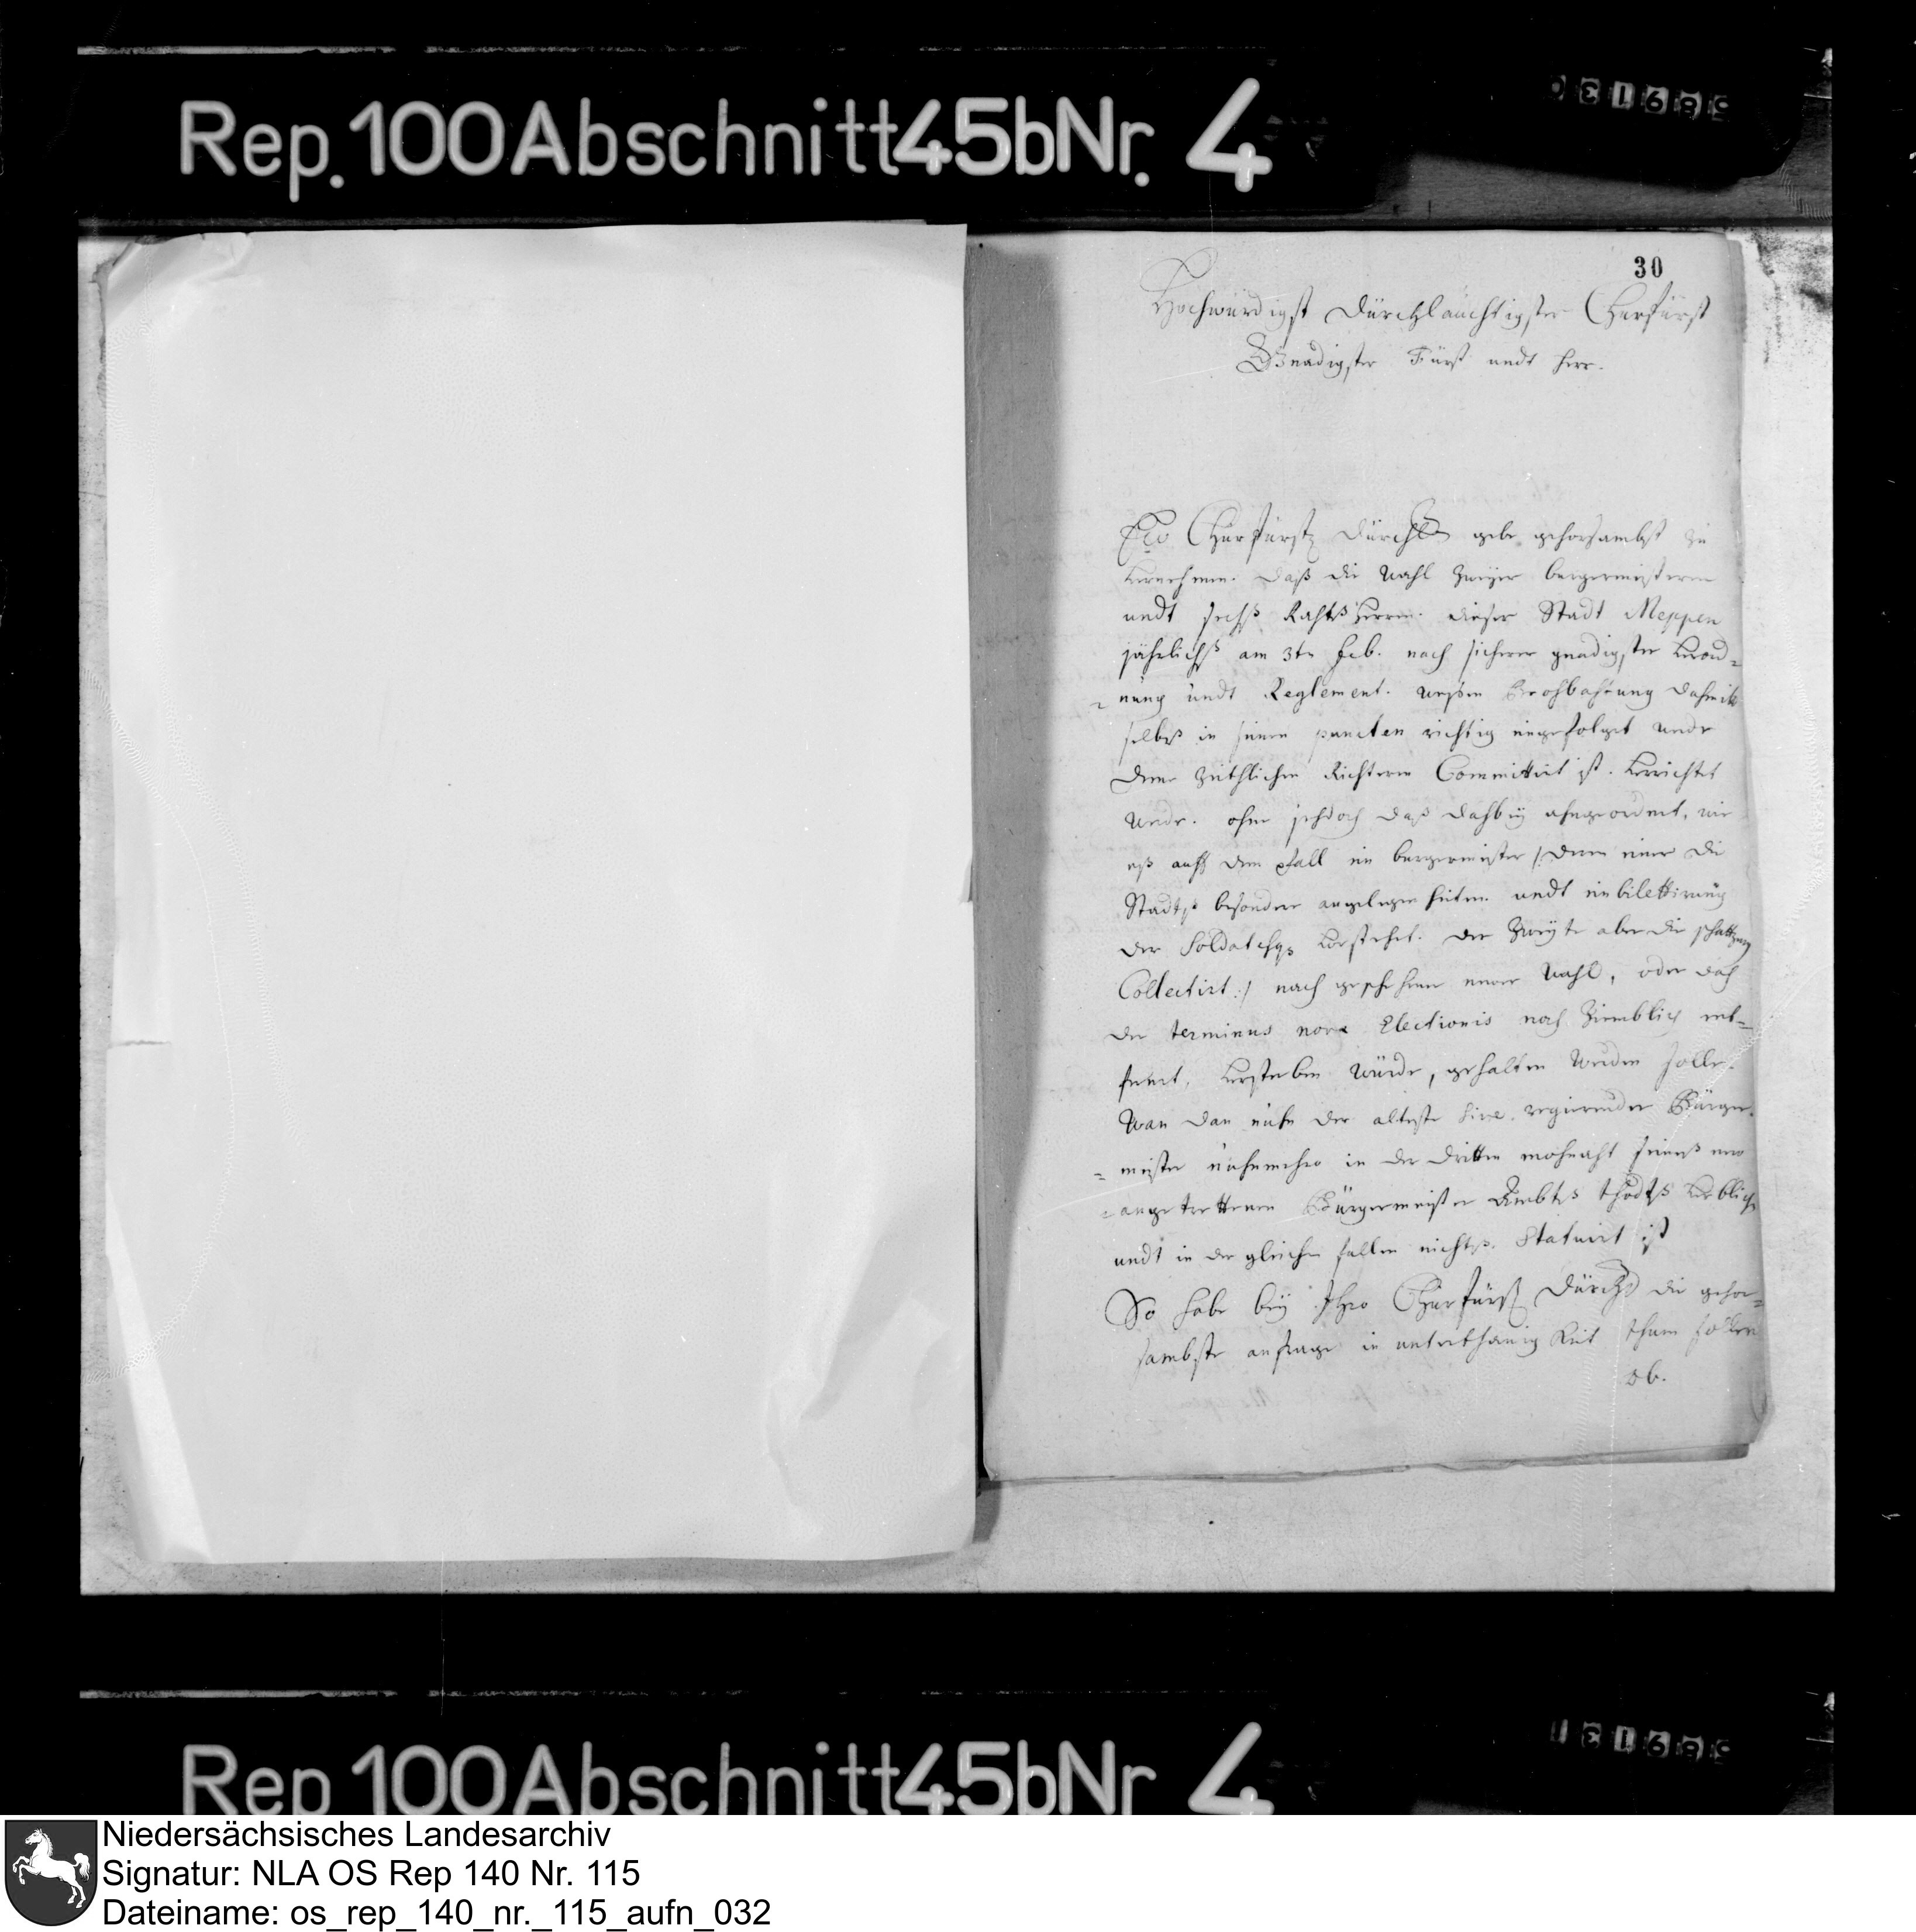 Rep. 100 Abschnitt 45b Nr. 4
30
Hochwürdigst Dürchläuchtigster Churfürst
Gnädigster Fürst undt Herr.
Ew Churfürstl Dürchl gebe gehorsambst zu
vernehmen. daß die wahl zweyer burgermeisteren
undt sechß Rahtßherren. dieser Stadt Meppen
jährlichß am 3ten feb. nach sicherer gnädigster verord=
=nung undt Reglement. weßen Beobachtung
selbst in seinen puncten richtig eingefolget werde
denen zeithlichen Richteren Committirt ist. verrichtet
werde. ohne jehdoch daß dahbey ahngeordnet, wie
eß auff den fall ein burgermeister /: deren einer die
Stadtß besondere angelegenheiten undt einbilettirung
der Soldatesq vorstehet. der zweyte aber die schattzung
Collectirt :/ nach geschehener neuer wahl, oder dah
der terminus novæ Electionis noch ziemblich ent=
fernt, versterben würde, gehalten werden solle.
Wan dan nuhn der älteste sive regierender Bürger=
=meister nuhnmehro in der dritten mohnaht seineß neu
=angetrettenen Bürgermeister Ambtß thodtß verblich
undt in der gleichen fallen nichtß Statuirt ist
So habe bey Ihro Churfürstl Dürchl die gehor=
sambste anfrage in unterthänigkeit thuen sollen
ob.
Rep 100 Abschnitt 45b Nr 4
Niedersächsisches Landesarchiv
Signatur: NLA OS Rep 140 Nr. 115
Dateiname: os_rep_140_nr._115_aufn_032